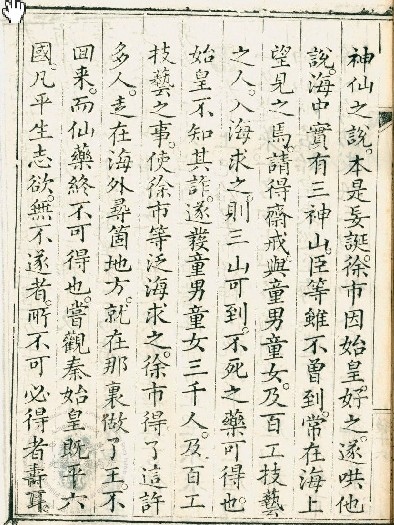 神仙之說。本是妄誕。徐市因始皇好之。遂哄他
說。海中實有三神山。臣等雖不曾到。常在海上
望見之焉。請得齋戒。與童男童女。及百工技藝
之人。入海求之。則三山可到。不死之藥可得也。
始皇不知其詐。遂發童男童女三千人。及百工
技藝之事。使徐市等泛海求之。徐市得了這許
多人。走在海外尋箇地方。就在那裏做了王。不
回来。而仙藥終不可得也。嘗觀秦始皇既平六
國。凡平生志欲。無不遂者。所不可必得者壽耳